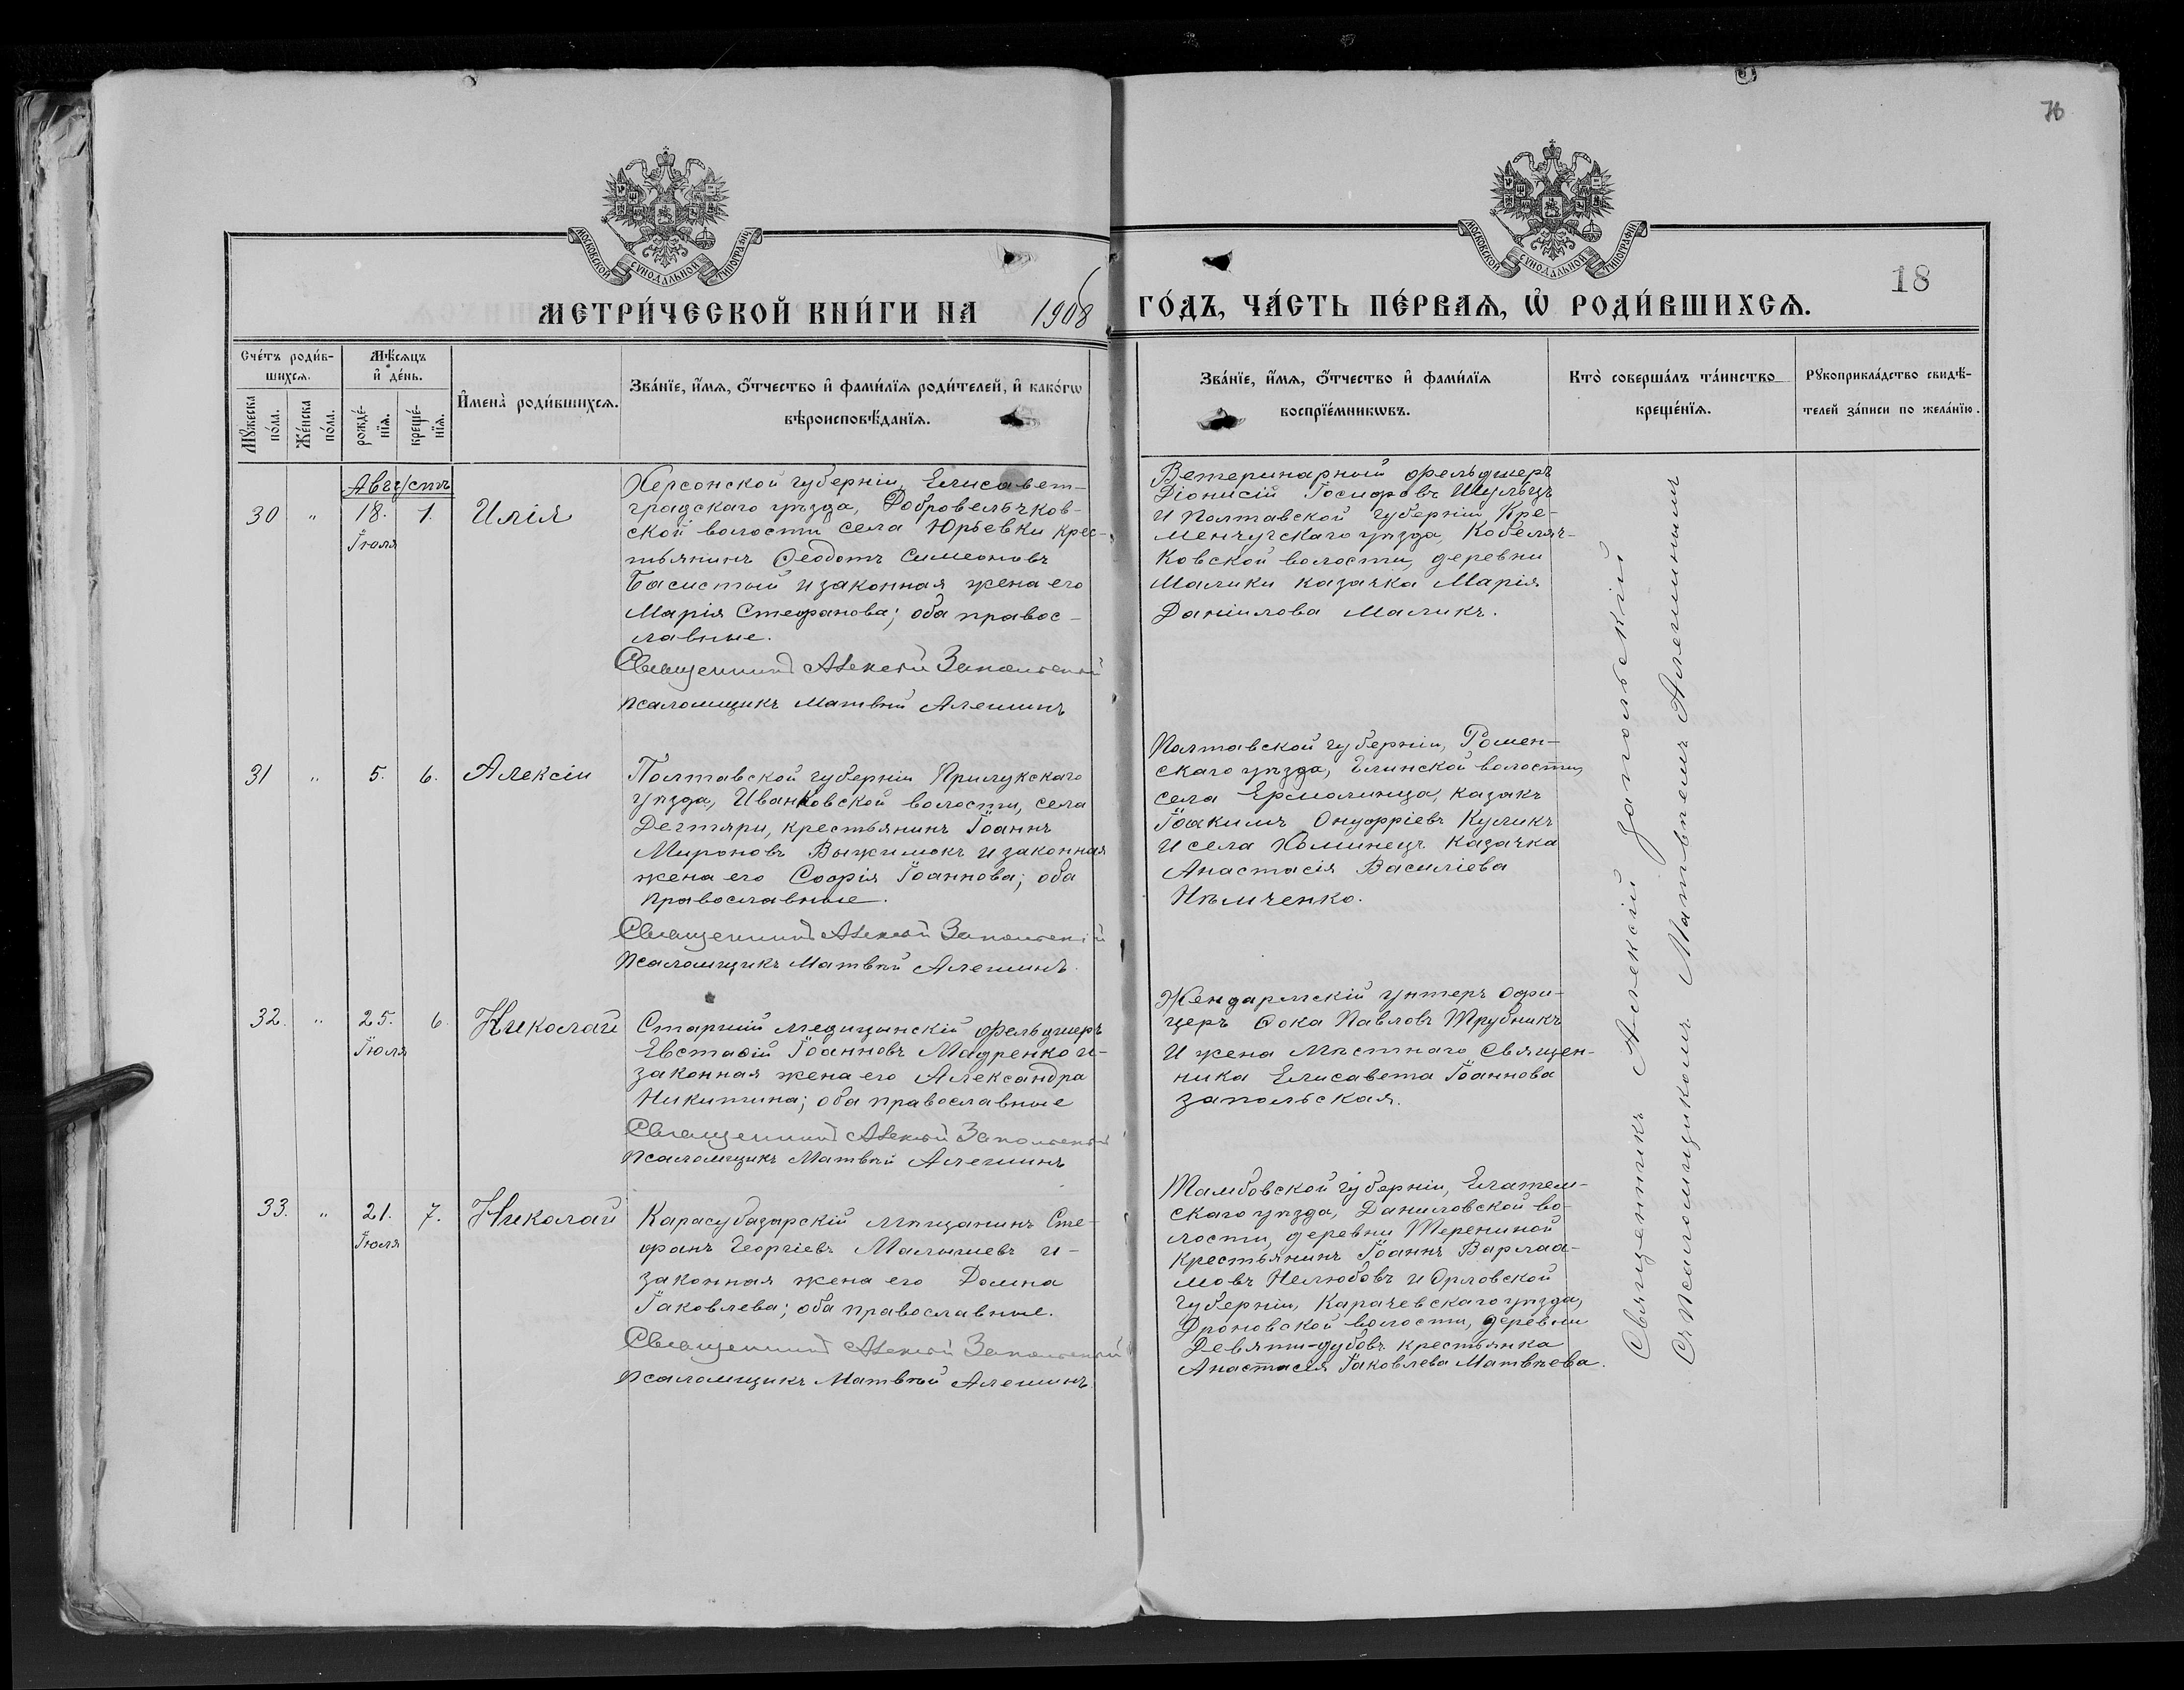 76
18
МОСКОВСКОЙ СѴНОДАЛЬНОЙ ТИПОГРАФІИ
МОСКОВСКОЙ СѴНОДАЛЬНОЙ ТИПОГРАФІИ
МЕТРИ́ЧЕСКОЙ КНИ́ГИ НА 1908 ГО́ДЪ, ЧА́СТЬ ПЕ́РВАѦ, Ѡ҆ РОДИ́ВШИХСѦ.
Сче́тъ роди́в-
шихсѧ.
Мꙋ́жеска по́ла.
Же́нска по́ла.
Мѣ́сѧцъ
и҆ де́нь.
рожде́-
нїѧ.
креще́-
нїѧ.
И҆мена̀ роди́вшихсѧ.
Зва́нїе, и҆́мѧ, ѻ҆́тчество и҆ фами́лїѧ роди́телей, и҆ како́гѡ
вѣроисповѣ́данїѧ.
Зва́нїе, и҆́мѧ, ѻ҆́тчество и҆ фами́лїѧ
воспрїе́мникѡвъ.
Кто̀ соверша́лъ та́инство
креще́нїѧ.
Рꙋкоприкла́дство свидѣ́-
телей за́писи по жела́нїю.
Августъ
30 " 18. 1. Илія
Іюля
Херсонской губерніи, Елисавет-
градскаго уѣзда, Добровельчков-
ской волости села Юрьевки крес-
тьянинъ Ѳеодотъ Симеоновъ
Басистый и законная жена его
Марія Стефанова; оба правос-
лавные.
Священникъ Алексій Запольскій
Псаломщикъ Матвѣй Алешинъ
Ветеринарный фельдшеръ
Діонисій Іосифовъ Шульцъ
и Полтавской губерніи Кре-
менчугскаго уѣзда, Кобеляч-
ковской волости, деревни
Малики казачка Марія
Даніилова Маликъ.
31 " 5. 6. Алексій
Полтавской губерніи Прилукскаго
уѣзда, Иванковской волости, села
Дегтяри, крестьянинъ Іоаннъ
Мироновъ Выжимокъ и законная
жена его Софія Іоаннова; оба
православные.
Священникъ Алексій Запольскій
Псаломщикъ Матвѣй Алешинъ.
Полтавской губерніи, Ромен-
скаго уѣзда, Глинской волости,
села Ермолинца, казакъ
Іоакимъ Онуфріевъ Куликъ
и села Хоминецъ казачка
Анастасія Василіева
Нѣмченко.
32. " 25. 6. Николай
Іюля
Старшій медицынскій фельдшеръ
Евстаѳій Іоанновъ Мадренко и-
законная жена его Александра
Никитина; оба православные
Священникъ Алексій Запольскій
Псаломщикъ Матвѣй Алешинъ
Жендармскій унтеръ офи-
церъ Ѳока Павловъ Трубникъ
и жена мѣстнаго священ-
ника Елисавета Іоаннова
Запольская.
33. " 21. 7. Николай
Іюля
Карасубазарскій мѣщанинъ Сте-
фанъ Георгіевъ Малышевъ и-
законная жена его Домна
Іаковлева; оба православные.
Священникъ Алексій Запольскій
Псаломщикъ Матвѣй Алешинъ.
Тамбовской губерніи, Елатем-
скаго уѣзда, Даниловской во-
лости, деревни Терениной
крестьянинъ Іоаннъ Варлаа-
мовъ Нелюбовъ и Орловской
губерніи, Карачевскаго уѣзда,
Дроновской волости, деревни
Девяти-дубовъ крестьянка
Анастасія Іаковлева Матвѣева.
Священникъ Алексій Запольскій
Съ псаломщикомъ Матвѣемъ Алешинымъ